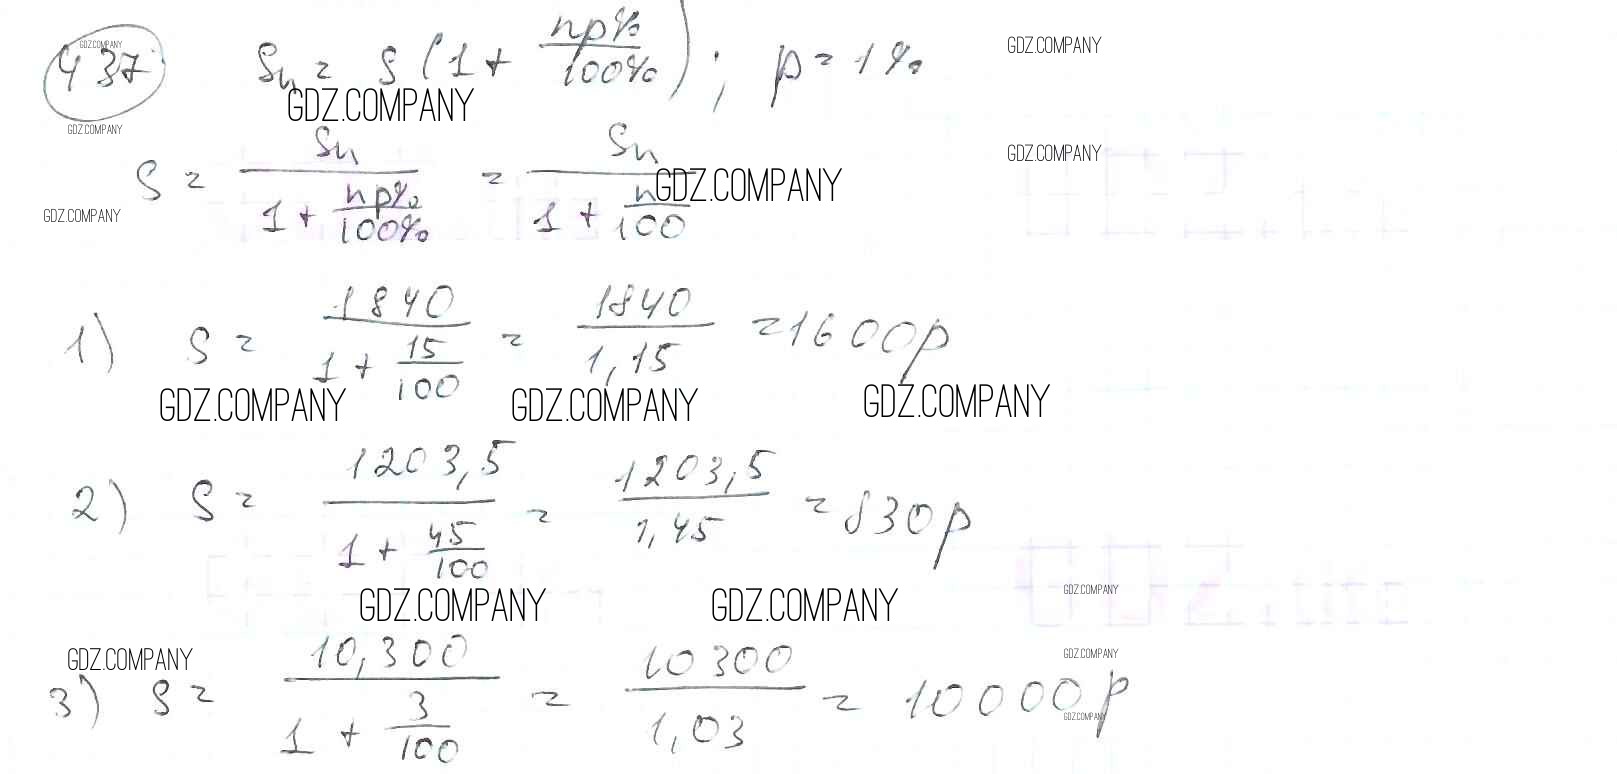 GDZ.COMPANY
437 Sn = S (1 + np%/100%); p = 1% GDZ.COMPANY
GDZ.COMPANY
GDZ.COMPANY
S = Sn/(1 + np%/100%) = Sn/(1 + n/100) GDZ.COMPANY GDZ.COMPANY
GDZ.COMPANY
1) S = 1840/(1 + 15/100) = 1840/1,15 = 1600р
GDZ.COMPANY GDZ.COMPANY GDZ.COMPANY
2) S = 1203,5/(1 + 45/100) = 1203,5/1,45 = 830р
GDZ.COMPANY GDZ.COMPANY GDZ.COMPANY
GDZ.COMPANY GDZ.COMPANY
3) S = 10,300/(1 + 3/100) = 10300/1,03 = 10000р
GDZ.COMPANY